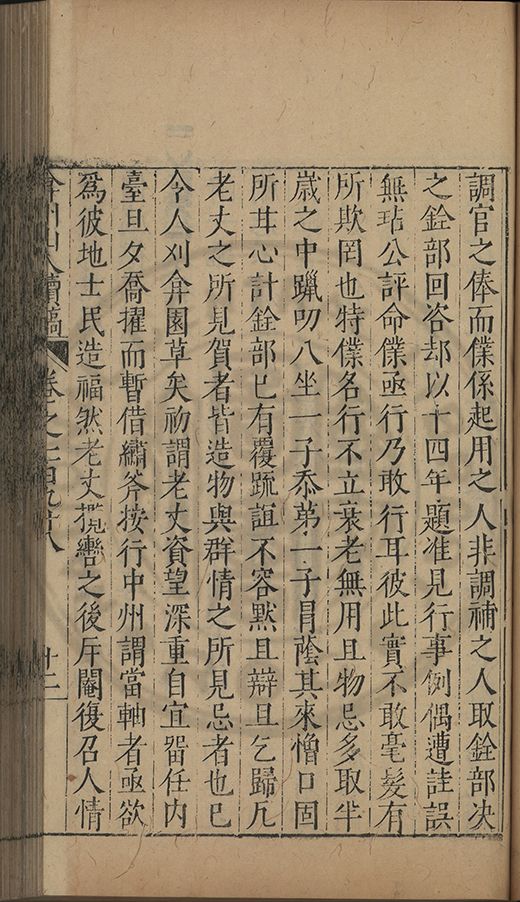 調官之俸而僕係起用之人非調補之人取銓部决
之銓部回咨却以十四年題准見行事例偶遭詿誤
無玷公評命僕亟行乃敢行耳彼此實不敢毫髮有
所欺罔也特僕名行不立衰老無用且物忌多取半
歲之中躐叨八坐一子忝第一子冐蔭其來憎口固
所甘心計銓部已有覆疏誼不容默且辯且乞歸凢
老丈之所見賀者皆造物與群情之所見忌者也已
令人刈弇園草矣初謂老丈資望深重自宜留任内
臺旦夕喬擢而暫借繡斧按行中州謂當軸者亟欲
爲彼地士民造福然老丈攬轡之後斥閹復召人情
弇州山人續稿 卷之一百九十八 十二